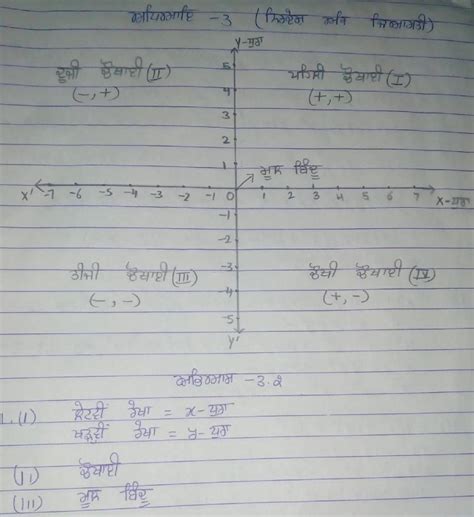 ਅਧਿਆਇ -3 (ਨਿਰਦੇਸ਼ ਅੰਕ ਜਿਆਮਤੀ)
Y-ਧੁਰਾ
5
ਦੂਜੀ ਚੌਥਾਈ (II) ਪਹਿਲੀ ਚੌਥਾਈ (I)
(-,+) 4 (+,+)
3
2
1
ਮੂਲ ਬਿੰਦੂ
X' -7 -6 -5 -4 -3 -2 -1 0 1 2 3 4 5 6 7 X-ਧੁਰਾ
-1
-2
ਤੀਜੀ ਚੌਥਾਈ (III) -3 ਚੌਥੀ ਚੌਥਾਈ (IV)
(-,-) -4 (+,-)
-5
Y'
ਅਭਿਆਸ -3.2
1.(i) ਲੇਟਵੀਂ ਰੇਖਾ = x-ਧੁਰਾ
ਖੜ੍ਹਵੀਂ ਰੇਖਾ = y-ਧੁਰਾ
(ii) ਚੌਥਾਈ
(iii) ਮੂਲ ਬਿੰਦੂ